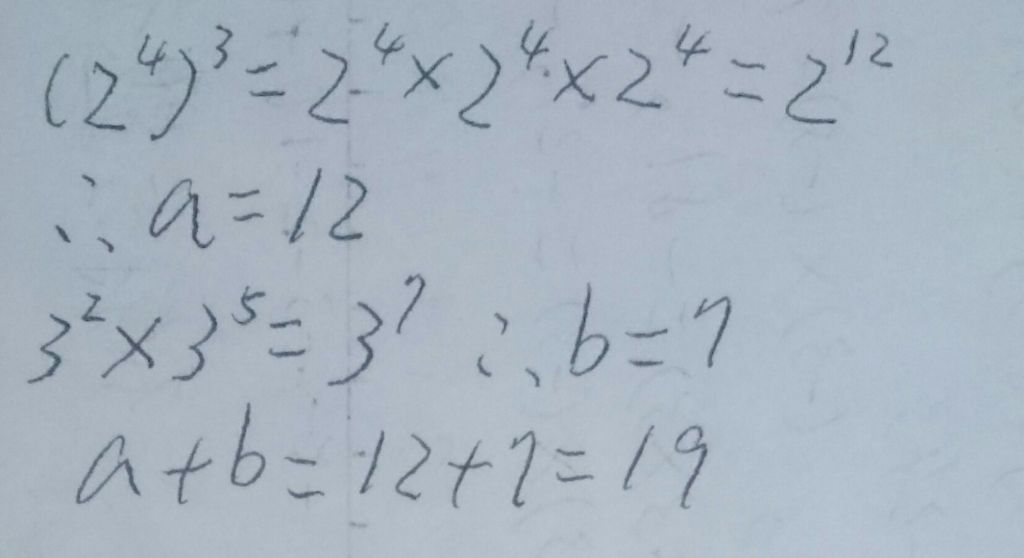 (2⁴)³=2⁴×2⁴×2⁴=2¹²
∴a=12
3²×3⁵=3⁷ ∴b=7
a+b=12+7=19